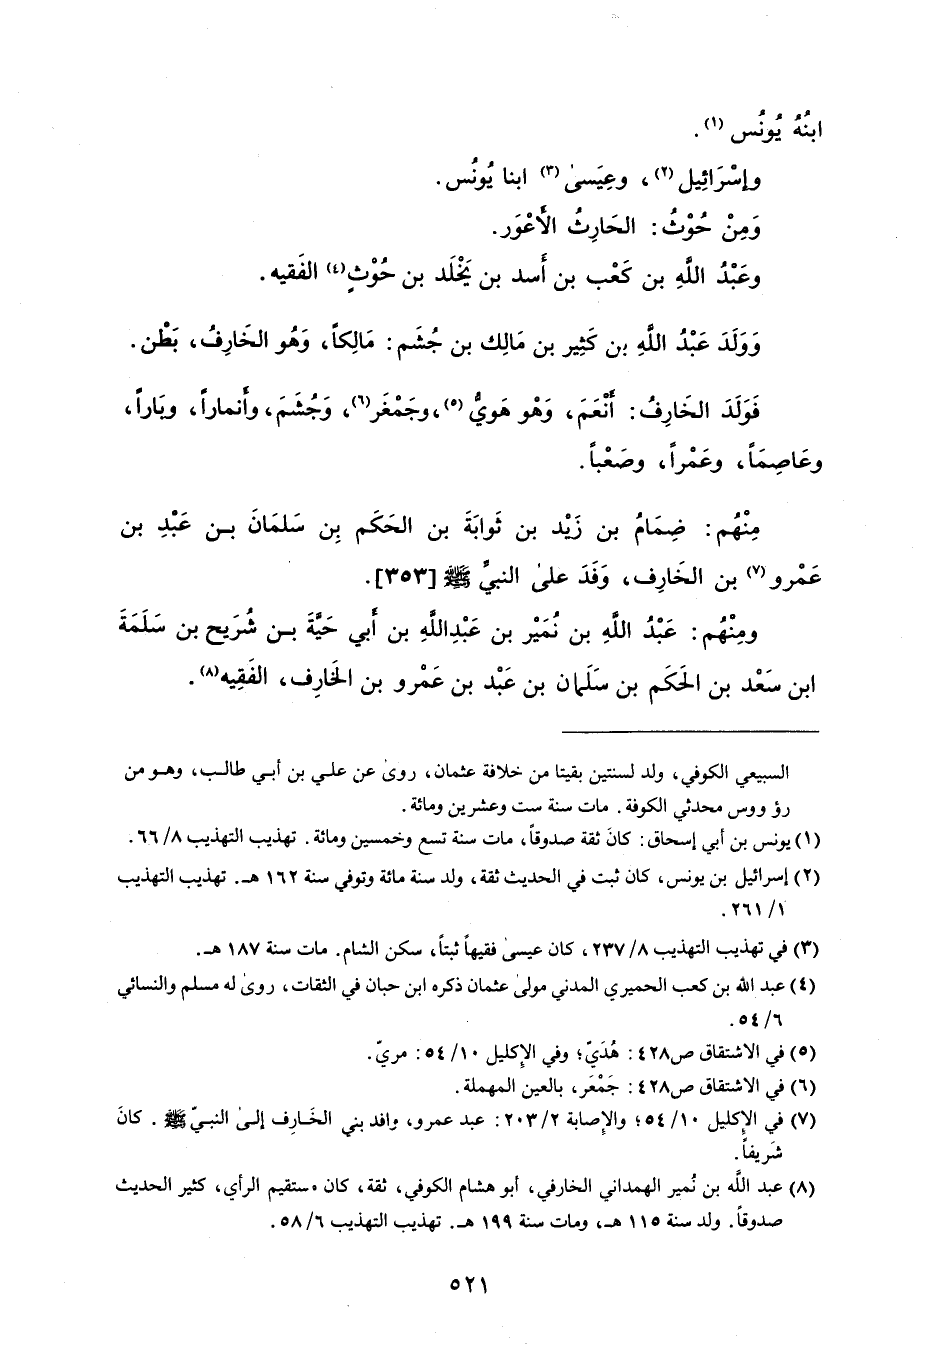 ابنُهُ يُونُس (١) .
وإسْرَائِيل(٢) ، وعِيَسىٰ(٣) ابنا يُونُس .
وَمِنْ حُوْثُ : الحَارِثُ الأَعْوَر .
وعَبْدُ اللَّهِ بن كَعْب بن أَسد بن يَخْلَد بن حُوْثٍ(٤) الفَقيه .
وَوَلَدَ عَبْدُ اللَّهِ بن كَثِير بن مَالِك بن جُشَم : مَالِكاً ، وَهُو الخَارِفُ ، بَطْن .
فَوَلَدَ الخَارِفُ : أَنْعَمَ ، وَهْو هَويُّ (٥)، وجَمْغَر(٦)، وَجُشَمَ ، وأَنماراً ، ويَاراً ،
وعَاصِمَاً ، وعَمْراً ، وصَعْباً .
مِنْهُم : ضِمَامُ بن زَيْد بن ثَوابَةَ بن الحَكَم بِن سَلمَانَ بـن عَبْدِ بن
عَمْرو(٧) بن الخَارِف ، وَفَدَ علىٰ النبيِّ ﷺ [٣٥٣] .
ومِنْهُم : عَبْدُ اللَّهِ بن نُمَيْر بن عَبْدِاللَّهِ بن أَبي حَيَّةَ بـن شُرَيح بن سَلَمَةَ
ابن سَعْد بن الحَكَم بن سَلَمان بن عَبْد بن عَمْرو بن الخَارِف ، الفَقِيه(٨) .
السبيعي الكوفي ، ولد لسنتين بقيتا من خلافة عثمان ، روىٰ عن علي بن أبي طالب ، وهـو من
رؤ ووس محدثي الكوفة . مات سنة ست وعشرين ومائة .
(١) يونس بن أبي إسحاق : كانَ ثقة صدوقاً ، مات سنة تسع وخمسين ومائة . تهذيب التهذيب ٦٦/٨ .
(٢) إسرائيل بن يونس ، كان ثبت في الحديث ثقة ، ولد سنة مائة وتوفي سنة ١٦٢ هـ . تهذيب التهذيب
٢٦١/١ .
(٣) في تهذيب التهذيب ٢٣٧/٨ ، كان عيسىٰ فقيهاً ثبتاً ، سكن الشام . مات سنة ١٨٧ هـ .
(٤) عبد الله بن كعب الحميري المدني مولىٰ عثمان ذكره ابن حبان في الثقات ، روىٰ له مسلم والنسائي
٥٤/٦ .
(٥) في الاشتقاق ص٤٢٨ : هُدَيّ ؛ وفي الإكليل ٥٤/١٠ : مريّ .
(٦) في الاشتقاق ص٤٢٨ : جَمْعَر ، بالعين المهملة .
(٧) في الإكليل ٥٤/١٠ ؛ والإصابة ٢٠٣/٢ : عبد عمرو ، وافد بني الخَارِف إلىٰ النبيّ ﷺ . كانَ
شَريفاً .
(٨) عبد اللَّه بن نُمير الهمداني الخارفي ، أبو هشام الكوفي ، ثقة ، كان مستقيم الرأي ، كثير الحديث
صدوقاً . ولد سنة ١١٥ هـ ، ومات سنة ١٩٩ هـ . تهذيب التهذيب ٥٨/٦ .
٥٢١